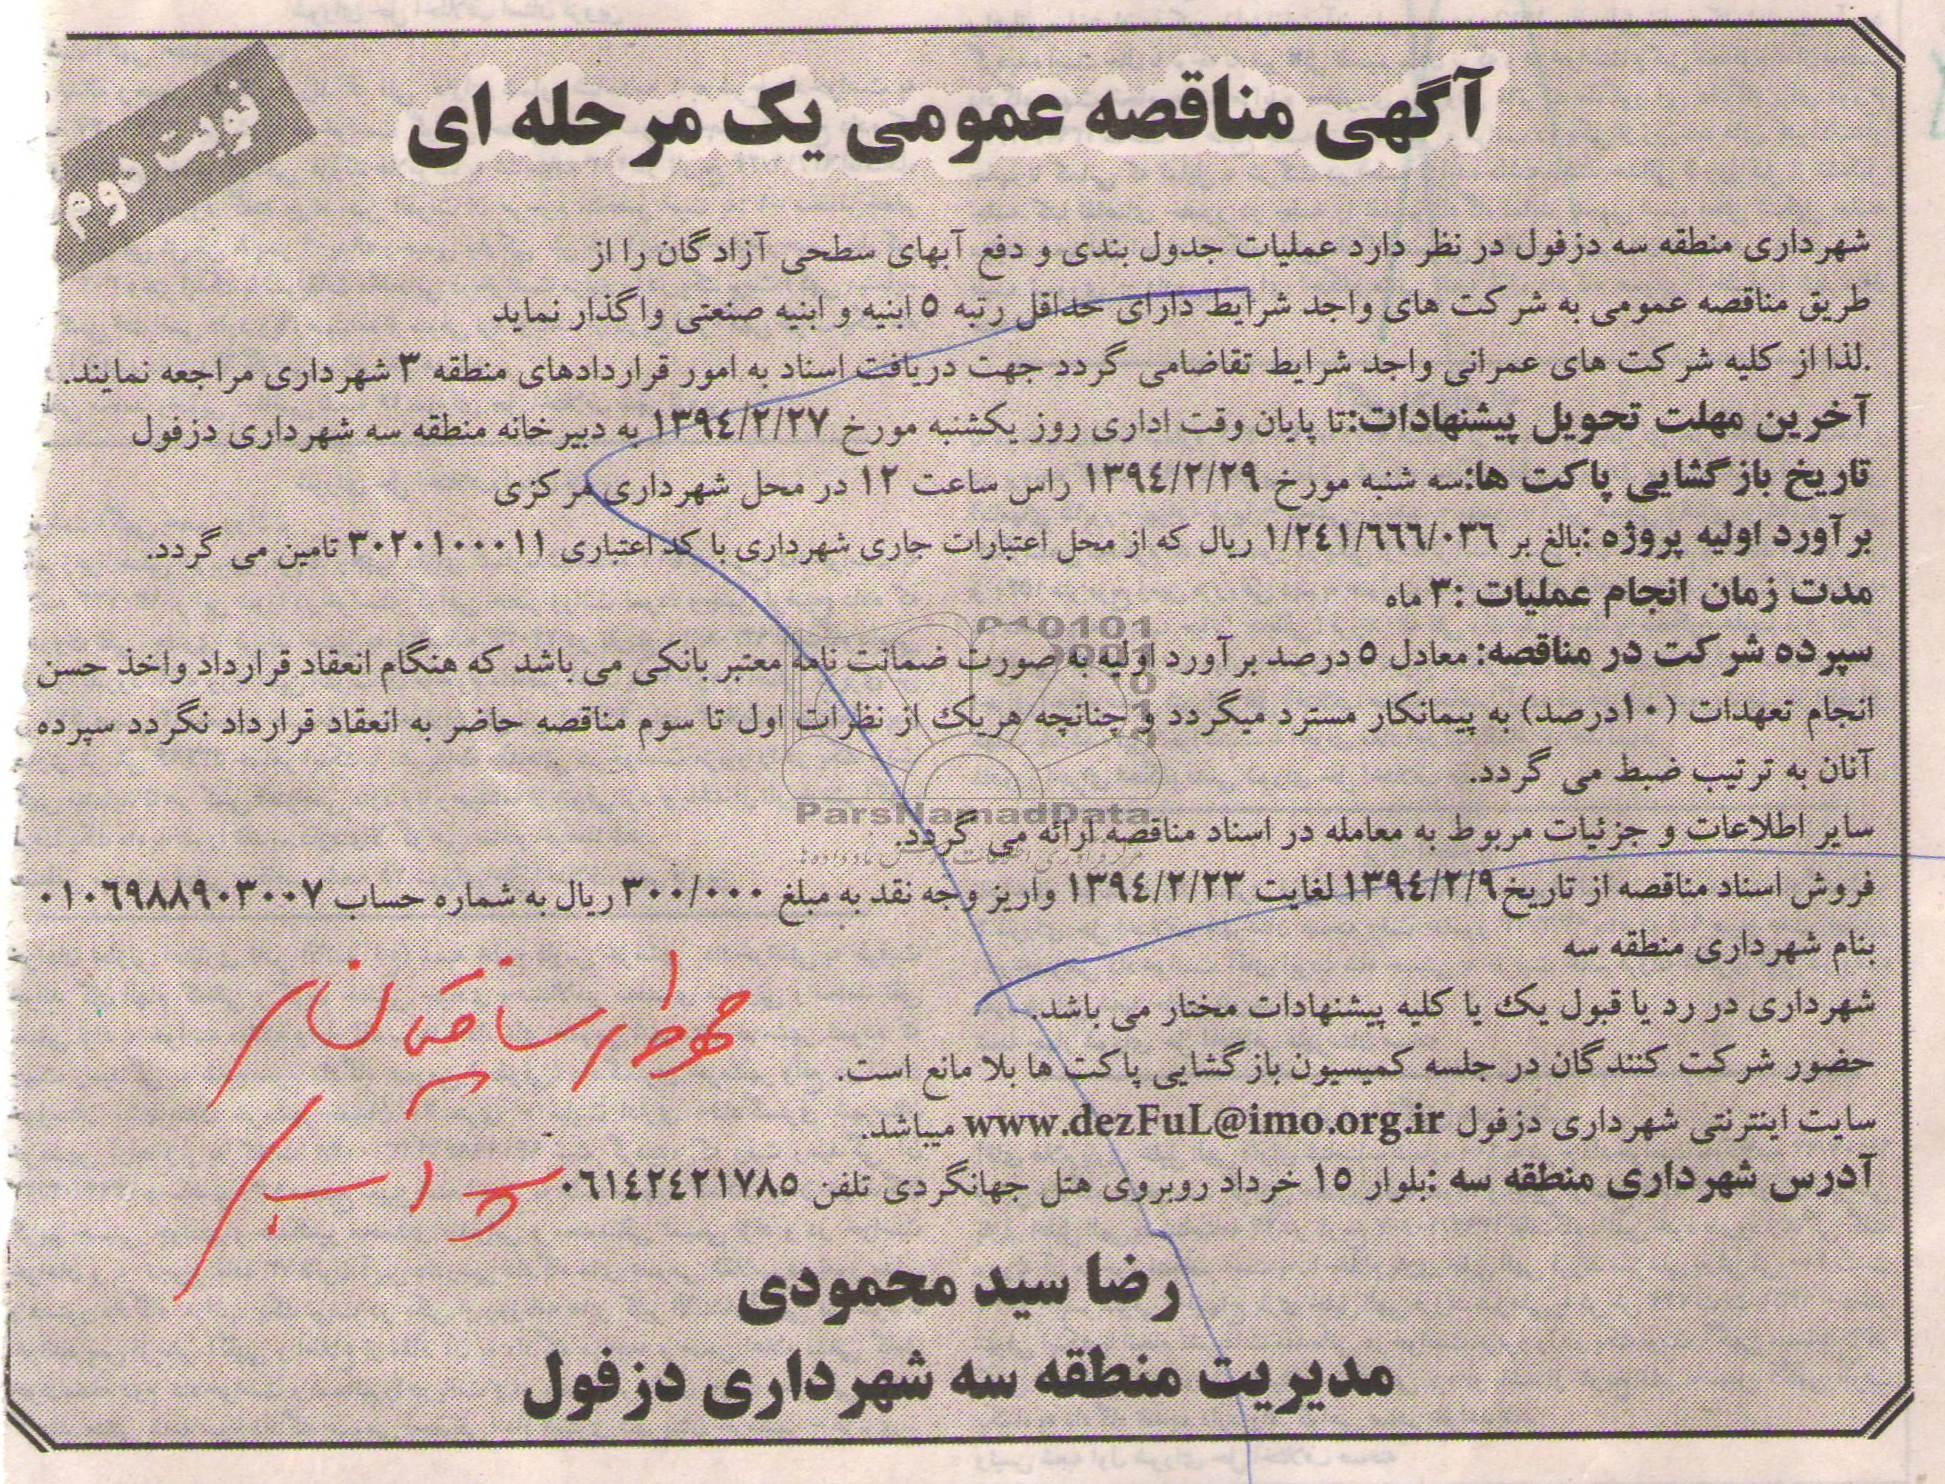 آگهی مناقصه عمومی یک مرحله ای
نوبت دوم
شهرداری منطقه سه دزفول در نظر دارد عملیات جدول بندی و دفع آبهای سطحی آزادگان را از
طریق مناقصه عمومی به شرکت های واجد شرایط دارای حداقل رتبه ٥ ابنیه و ابنیه صنعتی واگذار نماید
.لذا از کلیه شرکت های عمرانی واجد شرایط تقاضامی گردد جهت دریافت اسناد به امور قراردادهای منطقه ٣ شهرداری مراجعه نمایند.
آخرین مهلت تحویل پیشنهادات:تا پایان وقت اداری روز یکشنبه مورخ ١٣٩٤/٢/٢٧ به دبیرخانه منطقه سه شهرداری دزفول
تاریخ بازگشایی پاکت ها:سه شنبه مورخ ١٣٩٤/٢/٢٩ راس ساعت ١٢ در محل شهرداری مرکزی
برآورد اولیه پروژه :بالغ بر ١/٢٤١/٦٦٦/٠٣٦ ریال که از محل اعتبارات جاری شهرداری با کد اعتباری ٣٠٢٠١٠٠٠١١ تامین می گردد.
مدت زمان انجام عملیات :٣ ماه
سپرده شرکت در مناقصه: معادل ٥ درصد برآورد اولیه به صورت ضمانت نامه معتبر بانکی می باشد که هنگام انعقاد قرارداد واخذ حسن
انجام تعهدات (١٠درصد) به پیمانکار مسترد میگردد و چنانچه هریک از نظرات اول تا سوم مناقصه حاضر به انعقاد قرارداد نگردد سپرده
آنان به ترتیب ضبط می گردد.
سایر اطلاعات و جزئیات مربوط به معامله در اسناد مناقصه ارائه می گردد.
فروش اسناد مناقصه از تاریخ١٣٩٤/٢/٩ لغایت ١٣٩٤/٢/٢٣ واریز وجه نقد به مبلغ ٣٠٠/٠٠٠ ریال به شماره حساب ٠١٠٦٩٨٨٩٠٣٠٠٧
بنام شهرداری منطقه سه
شهرداری در رد یا قبول یک یا کلیه پیشنهادات مختار می باشد.
حضور شرکت کنندگان در جلسه کمیسیون بازگشایی پاکت ها بلا مانع است.
سایت اینترنتی شهرداری دزفول www.dezFuL@imo.org.ir میباشد.
آدرس شهرداری منطقه سه :بلوار ١٥ خرداد روبروی هتل جهانگردی تلفن ٠٦١٤٢٤٢١٧٨٥
رضا سید محمودی
مدیریت منطقه سه شهرداری دزفول
ParsNamadData